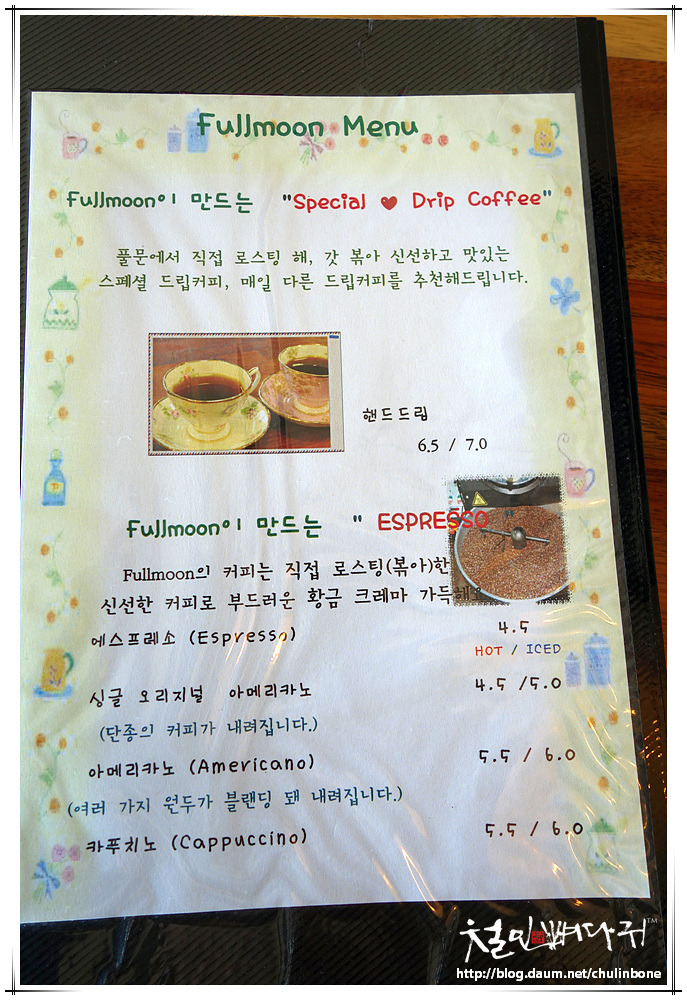 Fullmoon Menu
Fullmoon이 만드는 "Special ♥ Drip Coffee"
풀문에서 직접 로스팅 해, 갓 볶아 신선하고 맛있는
스페셜 드립커피, 매일 다른 드립커피를 추천해드립니다.
핸드드립
6.5 / 7.0
Fullmoon이 만드는 " ESPRESSO
Fullmoon의 커피는 직접 로스팅(볶아)한
신선한 커피로 부드러운 황금 크레마 가득해요
에스프레소 (Espresso) 4.5
HOT / ICED
싱글 오리지널 아메리카노 4.5 /5.0
(단종의 커피가 내려집니다.)
아메리카노 (Americano) 5.5 / 6.0
(여러 가지 원두가 블랜딩 돼 내려집니다.)
카푸치노 (Cappuccino) 5.5 / 6.0
철인뼈다귀™
http://blog.daum.net/chulinbone